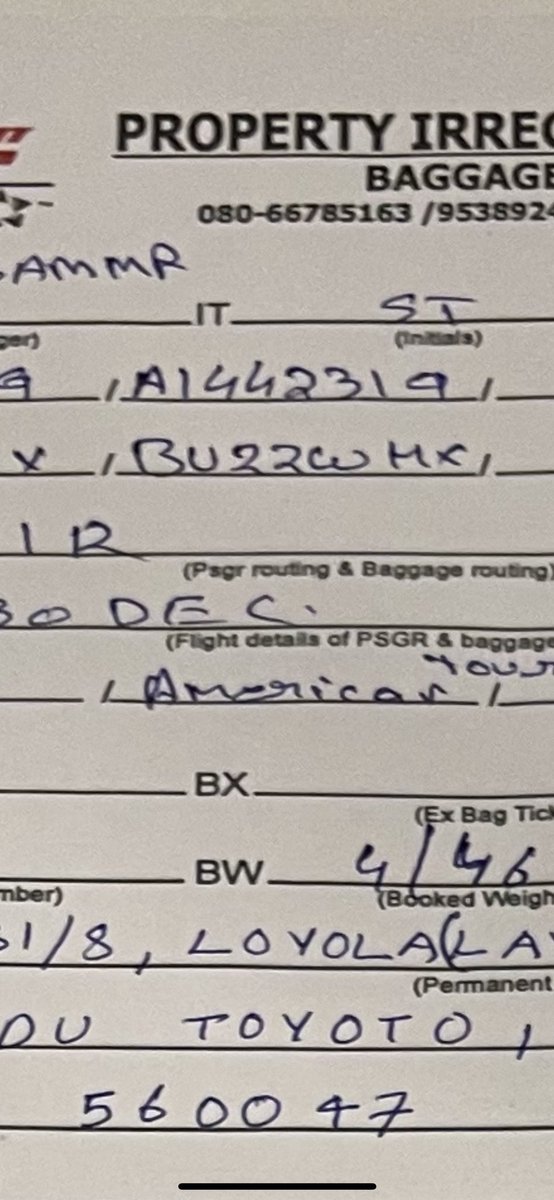 PROPERTY IRREG
BAGGAGE
080-66785163 /9538924
SAMMR
IT ST
ger) (Initials)
9 / AI442319 /
X / BU22WHX /
IR
(Psgr routing & Baggage routing)
30 DEC.
(Flight details of PSGR & baggage
/ American Tour /
BX
(Ex Bag Tick
BW 4/46
mber) (Booked Weigh
31/8, LOYOLA(LAY
(Permanent
DU TOYOTO,
560047